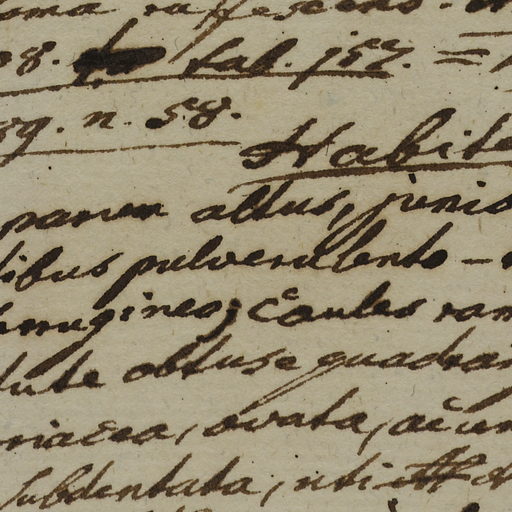 ma suffescens.
08. tab. 157. =
59. n. 58.
Habit
parum altus, junio
libus pulverulento -
rrugineo; Caules ram
tute obtuse quadran
riacea, ovata, acum
subdentata, uti